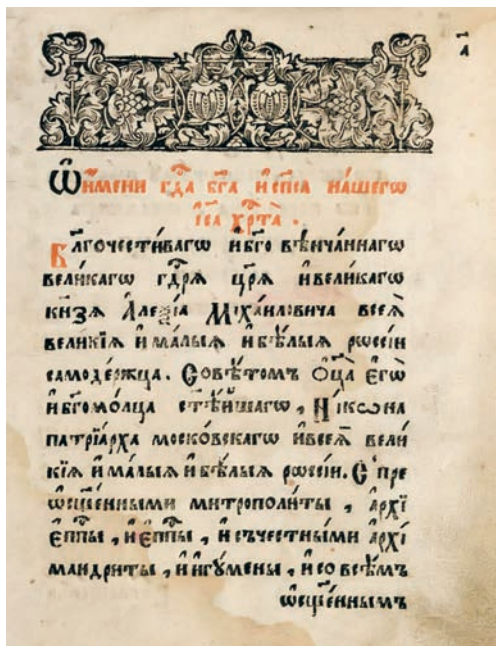 а҃
Ѿ и҆мени гдⷭ҇а бг҃а и҆ сп҃са на́шегѡ
і҆и҃са хрⷭ҇та̀ .
Бл҃гочести́вагѡ и҆ бг҃о вѣ́нчаннагѡ
вели́кагѡ гдⷭ҇рѧ цр҃ѧ и҆ вели́кагѡ
кнѧ́зѧ А҆леѯі́а Мїха́иловича всеѧ̀
вели́кїѧ и҆ ма́лыѧ и҆ бѣ́лыѧ рѡссі́и
самоде́ржца . Совѣ́томъ Ѻ҆ц҃а Є҆гѡ̀
и҆ бг҃омо́лца ст҃ѣ́йшагѡ , Ні́кѡна
патрїа́рха моско́вскагѡ и҆ всеѧ̀ вели́
кїѧ и҆ ма́лыѧ и҆ бѣ́лыѧ рѡссі́и . С пре
ѡ҆сщ҃е́нными митрополи́ты , а҆рхї
є҆пⷭ҇пы , и҆ є҆пⷭ҇пы , и҆ съ честны́ми а҆рхї
мандри́ты , и҆ и҆гꙋ́мены , и҆ со всѣ́мъ
ѡ҆сщ҃е́ннымъ